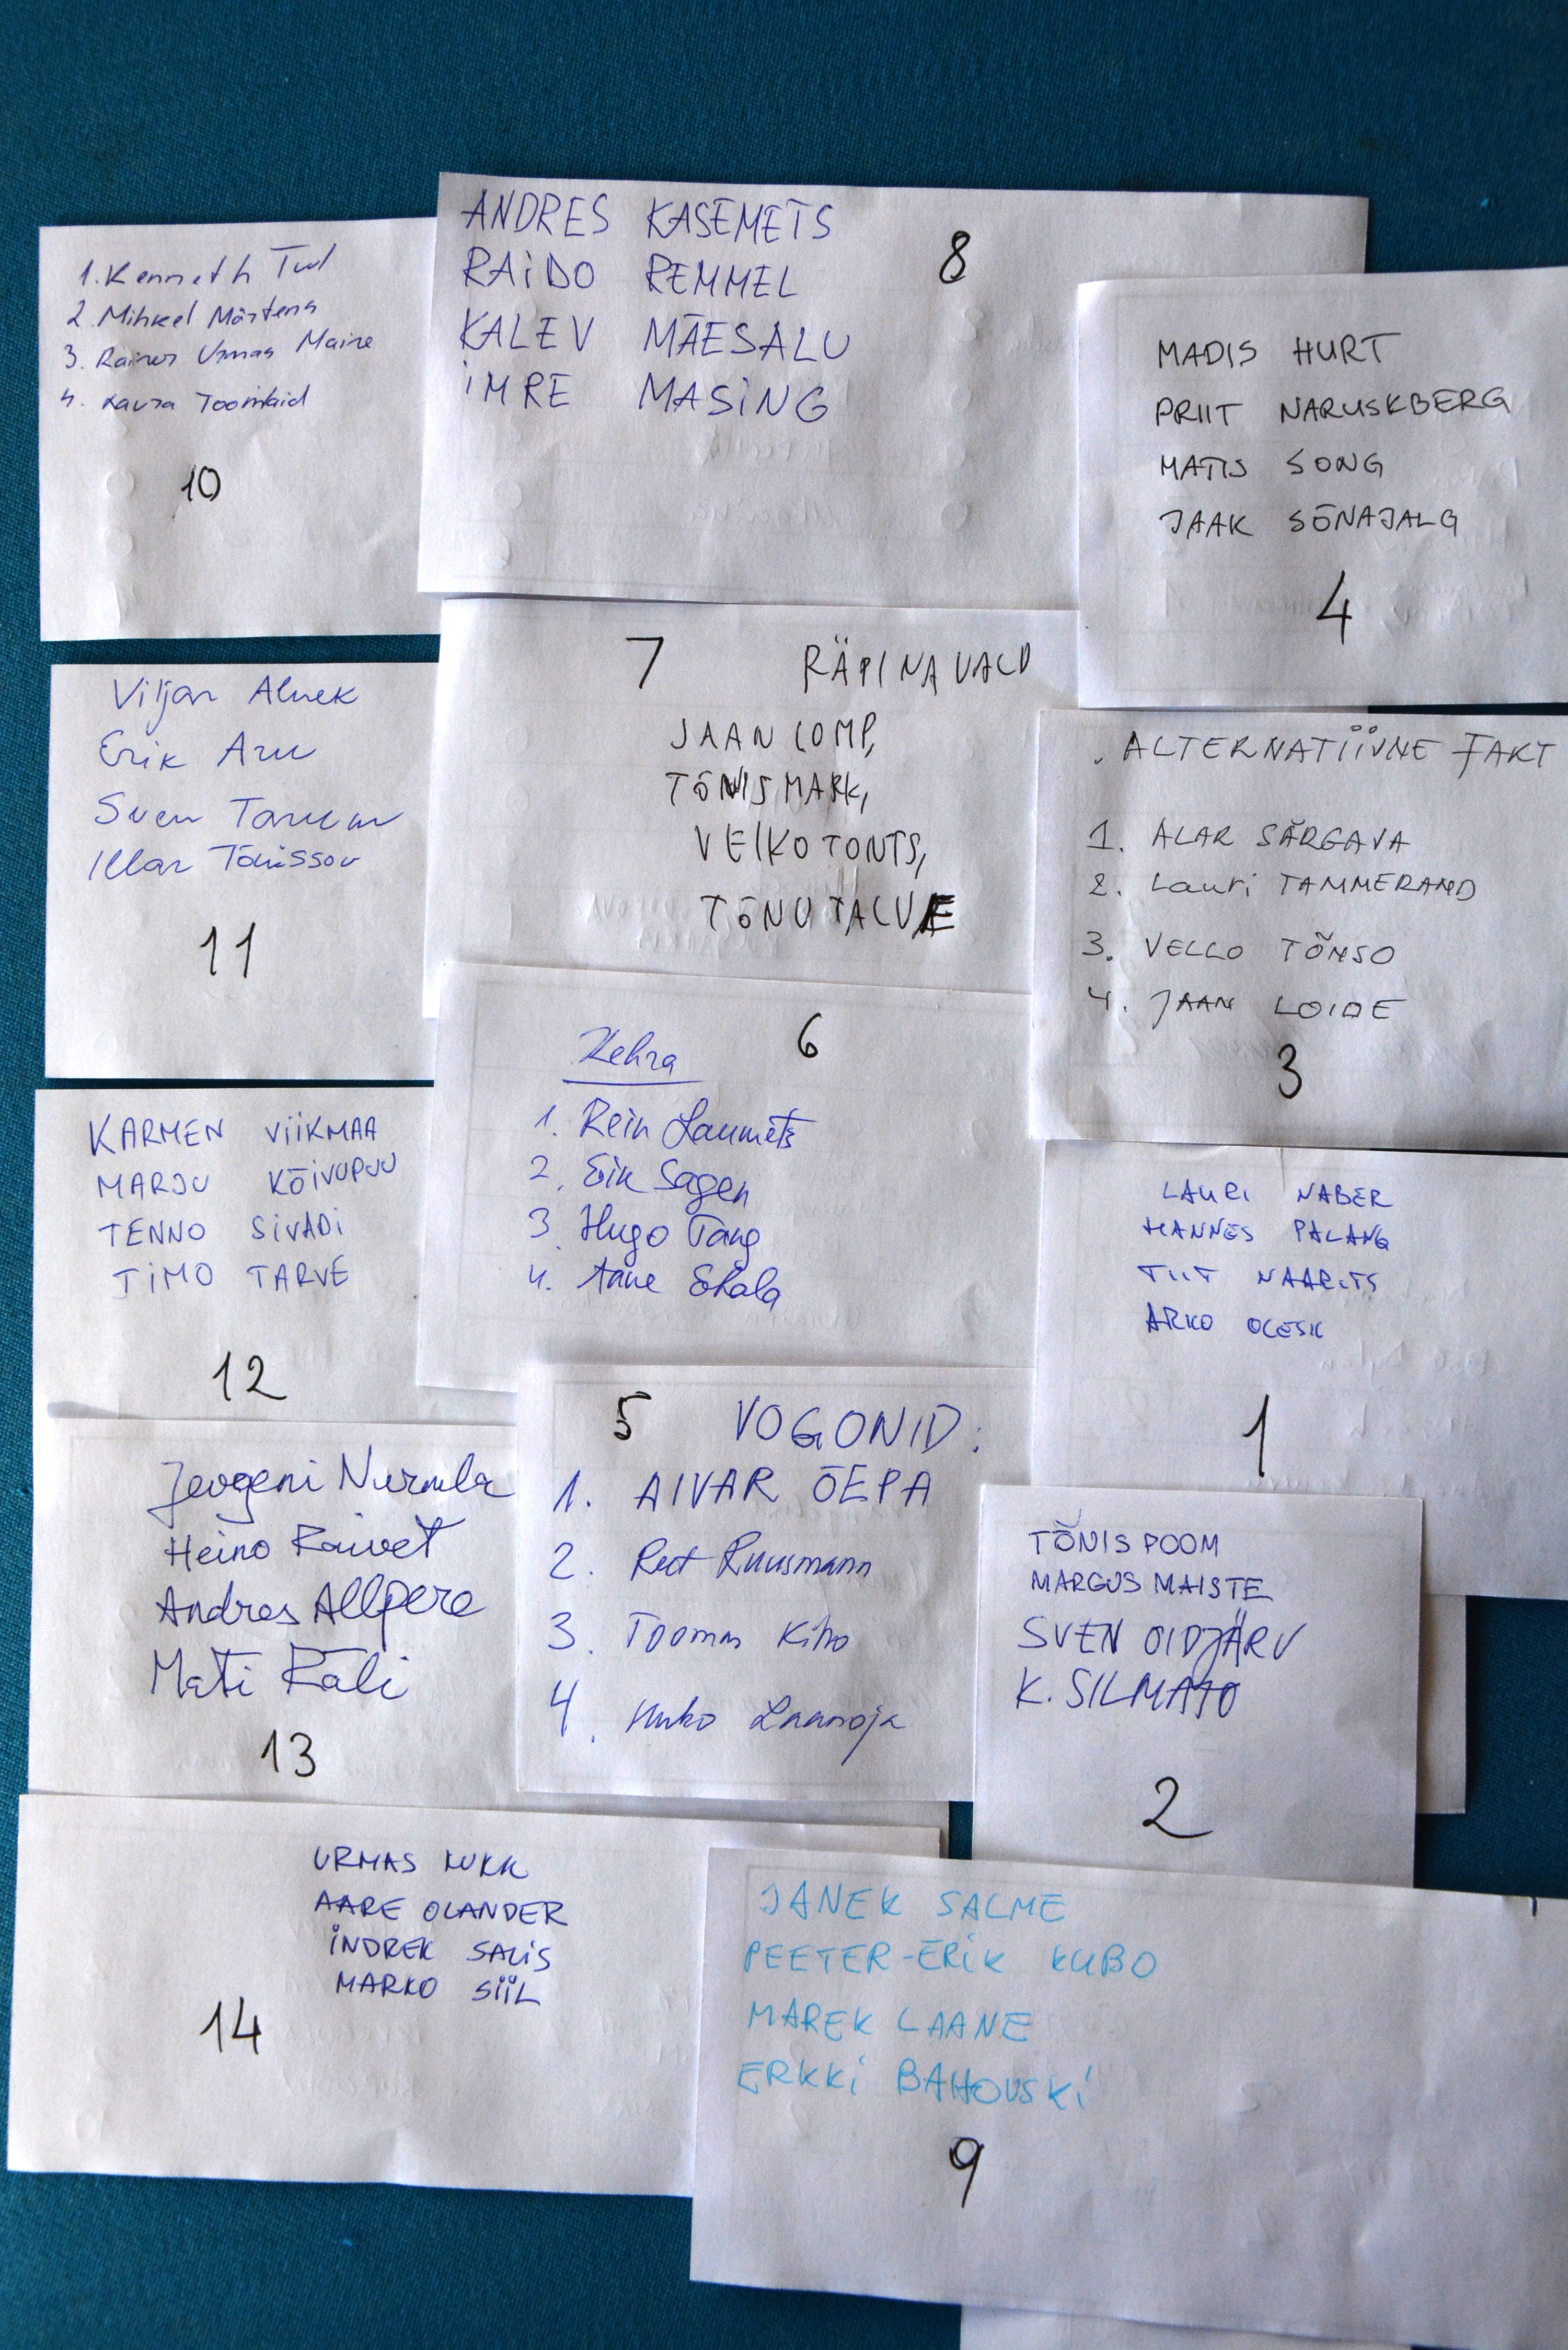 1. Kenneth
2. Mihkel Märtens
3. Rainer Urmas Maine
4. Laura Toomlaid
10
ANDRES KASEMETS
RAIDO REMMEL
KALEV MÄESALU
IMRE MASING
8
MADIS HURT
PRIIT NARUSKBERG
MATIS SONG
JAAK SÕNAJALG
4
Viljar Alnek
Erik Aru
Sven Tarum
Illar Tõnissov
11
7 RÄPINA VALD
JAAN LOMP,
TÕNIS MARK,
VEIKO TONTS,
TÕNU TALVE
ALTERNATIIVNE FAKT
1. ALAR SÄRGAVA
2. Lauri TAMMERAND
3. VELLO TÕNSO
4. JAAN LOIDE
3
6
Kehra
1. Rein Laumets
2. Erik Sagen
3. Hugo Tang
4. Aare Ehala
KARMEN VIIKMAA
MARJU KÕIVUPUU
TENNO SIVADI
TIMO TARVE
12
LAURI NABER
HANNES PALANG
TIIT NAARITS
ARKO OLESK
1
5 VOGONID:
1. AIVAR ÕEPA
2. Ruusmann
3. Toomas Kiho
4. Laanoja
Jevgeni Nurmla
Heino Raivet
Andres Allpere
Mati Rali
13
TÕNIS POOM
MARGUS MAISTE
SVEN OIDJÄRV
K. SILMATO
2
URMAS KUKK
AARE OLANDER
INDREK SALIS
MARKO SIIL
14
JANEK SALME
PEETER-ERIK KUBO
MAREK LAANE
ERKKI BAHOVSKI
9